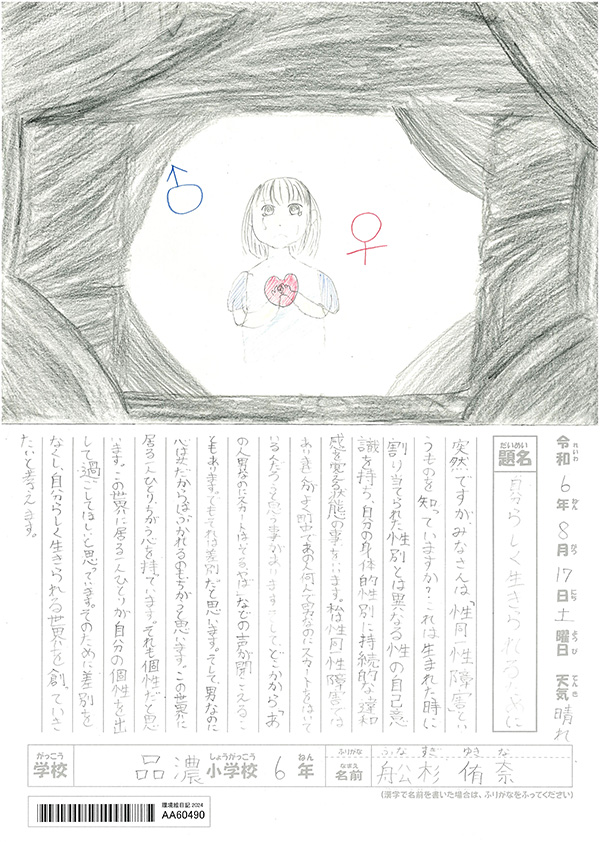 ♂
♀
令和6年8月17日土曜日 天気 晴れ
れいわ ねん がつ にち ようび てんき
だいめい
題名
らしく生きられるために
突然ですが、みなさんは「性同一性障害」とい
うものを知っていますか？これは生まれた時に
割り当てられた性別とは異なる性の自己意
識を持ち、自分の身体的性別に持続的な違和
感を覚える状態の事をいいます。私は性同一性障害では
ありませんが、よく町であの人何で男なのにスカートをはいて
いるんだろうって思う事があります。そして、どこからか「あ
の人男なのにスカートはいてるやば」などの声が聞こえるこ
ともあります。でもそれは差別だと思います。そして、男なのに
心は女だからはぶかれるのもちがうと思います。この世界に
居る一人ひとり、ちがう心を持っています。それも個性だと思
います。この世界に居る一人ひとりが自分の個性を出
して過ごしてほしいと思っています。そのために差別を
なくし、自分らしく生きられる世界を創っていき
たいと考えます。
がっこう しょうがっこう ねん
学校 品濃小学校 6年
ふりがな ふな すぎ ゆき な
なまえ
名前 舩杉 侑奈
(漢字で名前を書いた場合は、ふりがなをふってください)
環境絵日記 2024
AA60490